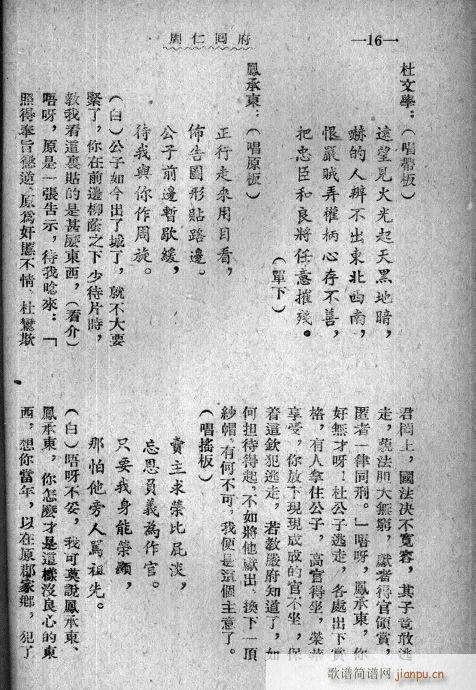 周仁回府
—16—
杜文學：（唱帶板）
遠望見火光起天黑地暗，
嚇的人辨不出東北西南，
恨嚴賊弄權柄心存不善，
把忠臣和良將任意摧殘。
（單下）
鳳承東：（唱原板）
正行走來用目看，
佈告圖形貼路邊。
公子前邊暫歇緩，
待我與你作周旋。
（白）公子如今出了城了，就不大要
緊了，你在前邊柳蔭之下少待片時，
教我看這裏貼的是甚麼東西，（看介）
唔呀，原是一張告示，待我唸來：「
照得奉旨懲逆，原爲奸慝不情，杜鸞欺
君罔上，國法決不寬容，其子竟敢逃
走，藐法胆大無窮，獻者得官領賞，
匿者一律同刑。」唔呀，鳳承東，你
好無才呀！杜公子逃走，各處出下賞
格，有人拿住公子，高官得坐，榮華
享受，你放下現現成成的官不坐，保
着這欽犯逃走，若教嚴府知道了，如
何担待得起，不如將他獻出，換下一頂
紗帽，有何不可，我便是這個主意了。
（唱搖板）
賣主求榮比屁淡，
忘恩負義為作官。
只要我身能榮顯，
那怕他旁人罵祖先。
（白）唔呀不妥，我可莫說鳳承東、
鳳承東，你怎麼才是這樣沒良心的東
西，想你當年，以在原郡家鄉，犯了
歌谱简谱网
jianpu.cn